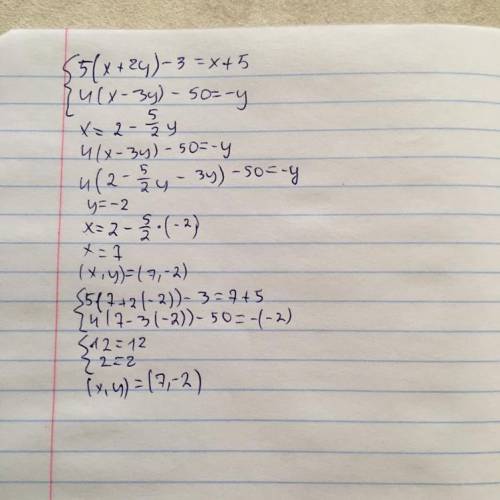 5(x+2y)-3=x+5
4(x-3y)-50=-y
x=2-5/2y
4(x-3y)-50=-y
4(2-5/2y-3y)-50=-y
y=-2
x=2-5/2*(-2)
x=7
(x,y)=(7,-2)
5(7+2(-2))-3=7+5
4(7-3(-2))-50=-(-2)
12=12
2=2
(x,y)=(7,-2)